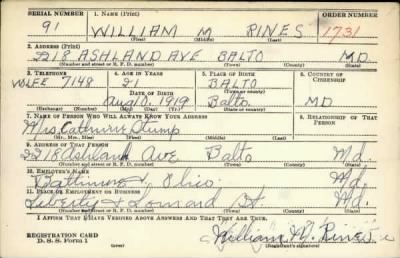 SERIAL NUMBER 1. NAME (Print) ORDER NUMBER
91 WILLIAM M RINES 1731
(First) (Middle) (Last)
2. ADDRESS (Print)
2218 ASHLAND AVE BALTO MD.
(Number and street or R. F. D. number) (Town) (County) (State)
3. TELEPHONE 4. AGE IN YEARS 5. PLACE OF BIRTH 6. COUNTRY OF CITIZENSHIP
WOLFE 7148 21 BALTO
DATE OF BIRTH Balto. MD
Aug 10. 1919
(Exchange) (Number) (Mo.) (Day) (Yr.) (State or country)
7. NAME OF PERSON WHO WILL ALWAYS KNOW YOUR ADDRESS 8. RELATIONSHIP OF THAT PERSON
Mrs. Catherine Stump
(Mr., Mrs., Miss) (First) (Middle) (Last)
9. ADDRESS OF THAT PERSON
2218 Ashland Ave Balto Md.
(Number and street or R. F. D. number) (Town) (County) (State)
10. EMPLOYER'S NAME
Baltimore & Ohio. Md.
11. PLACE OF EMPLOYMENT OR BUSINESS
Liberty & Lombard St. Md.
(Number and street or R. F. D. number) (Town) (County) (State)
I AFFIRM THAT I HAVE VERIFIED ABOVE ANSWERS AND THAT THEY ARE TRUE.
REGISTRATION CARD
D. S. S. Form 1
William M. Rines
(Registrant's signature)